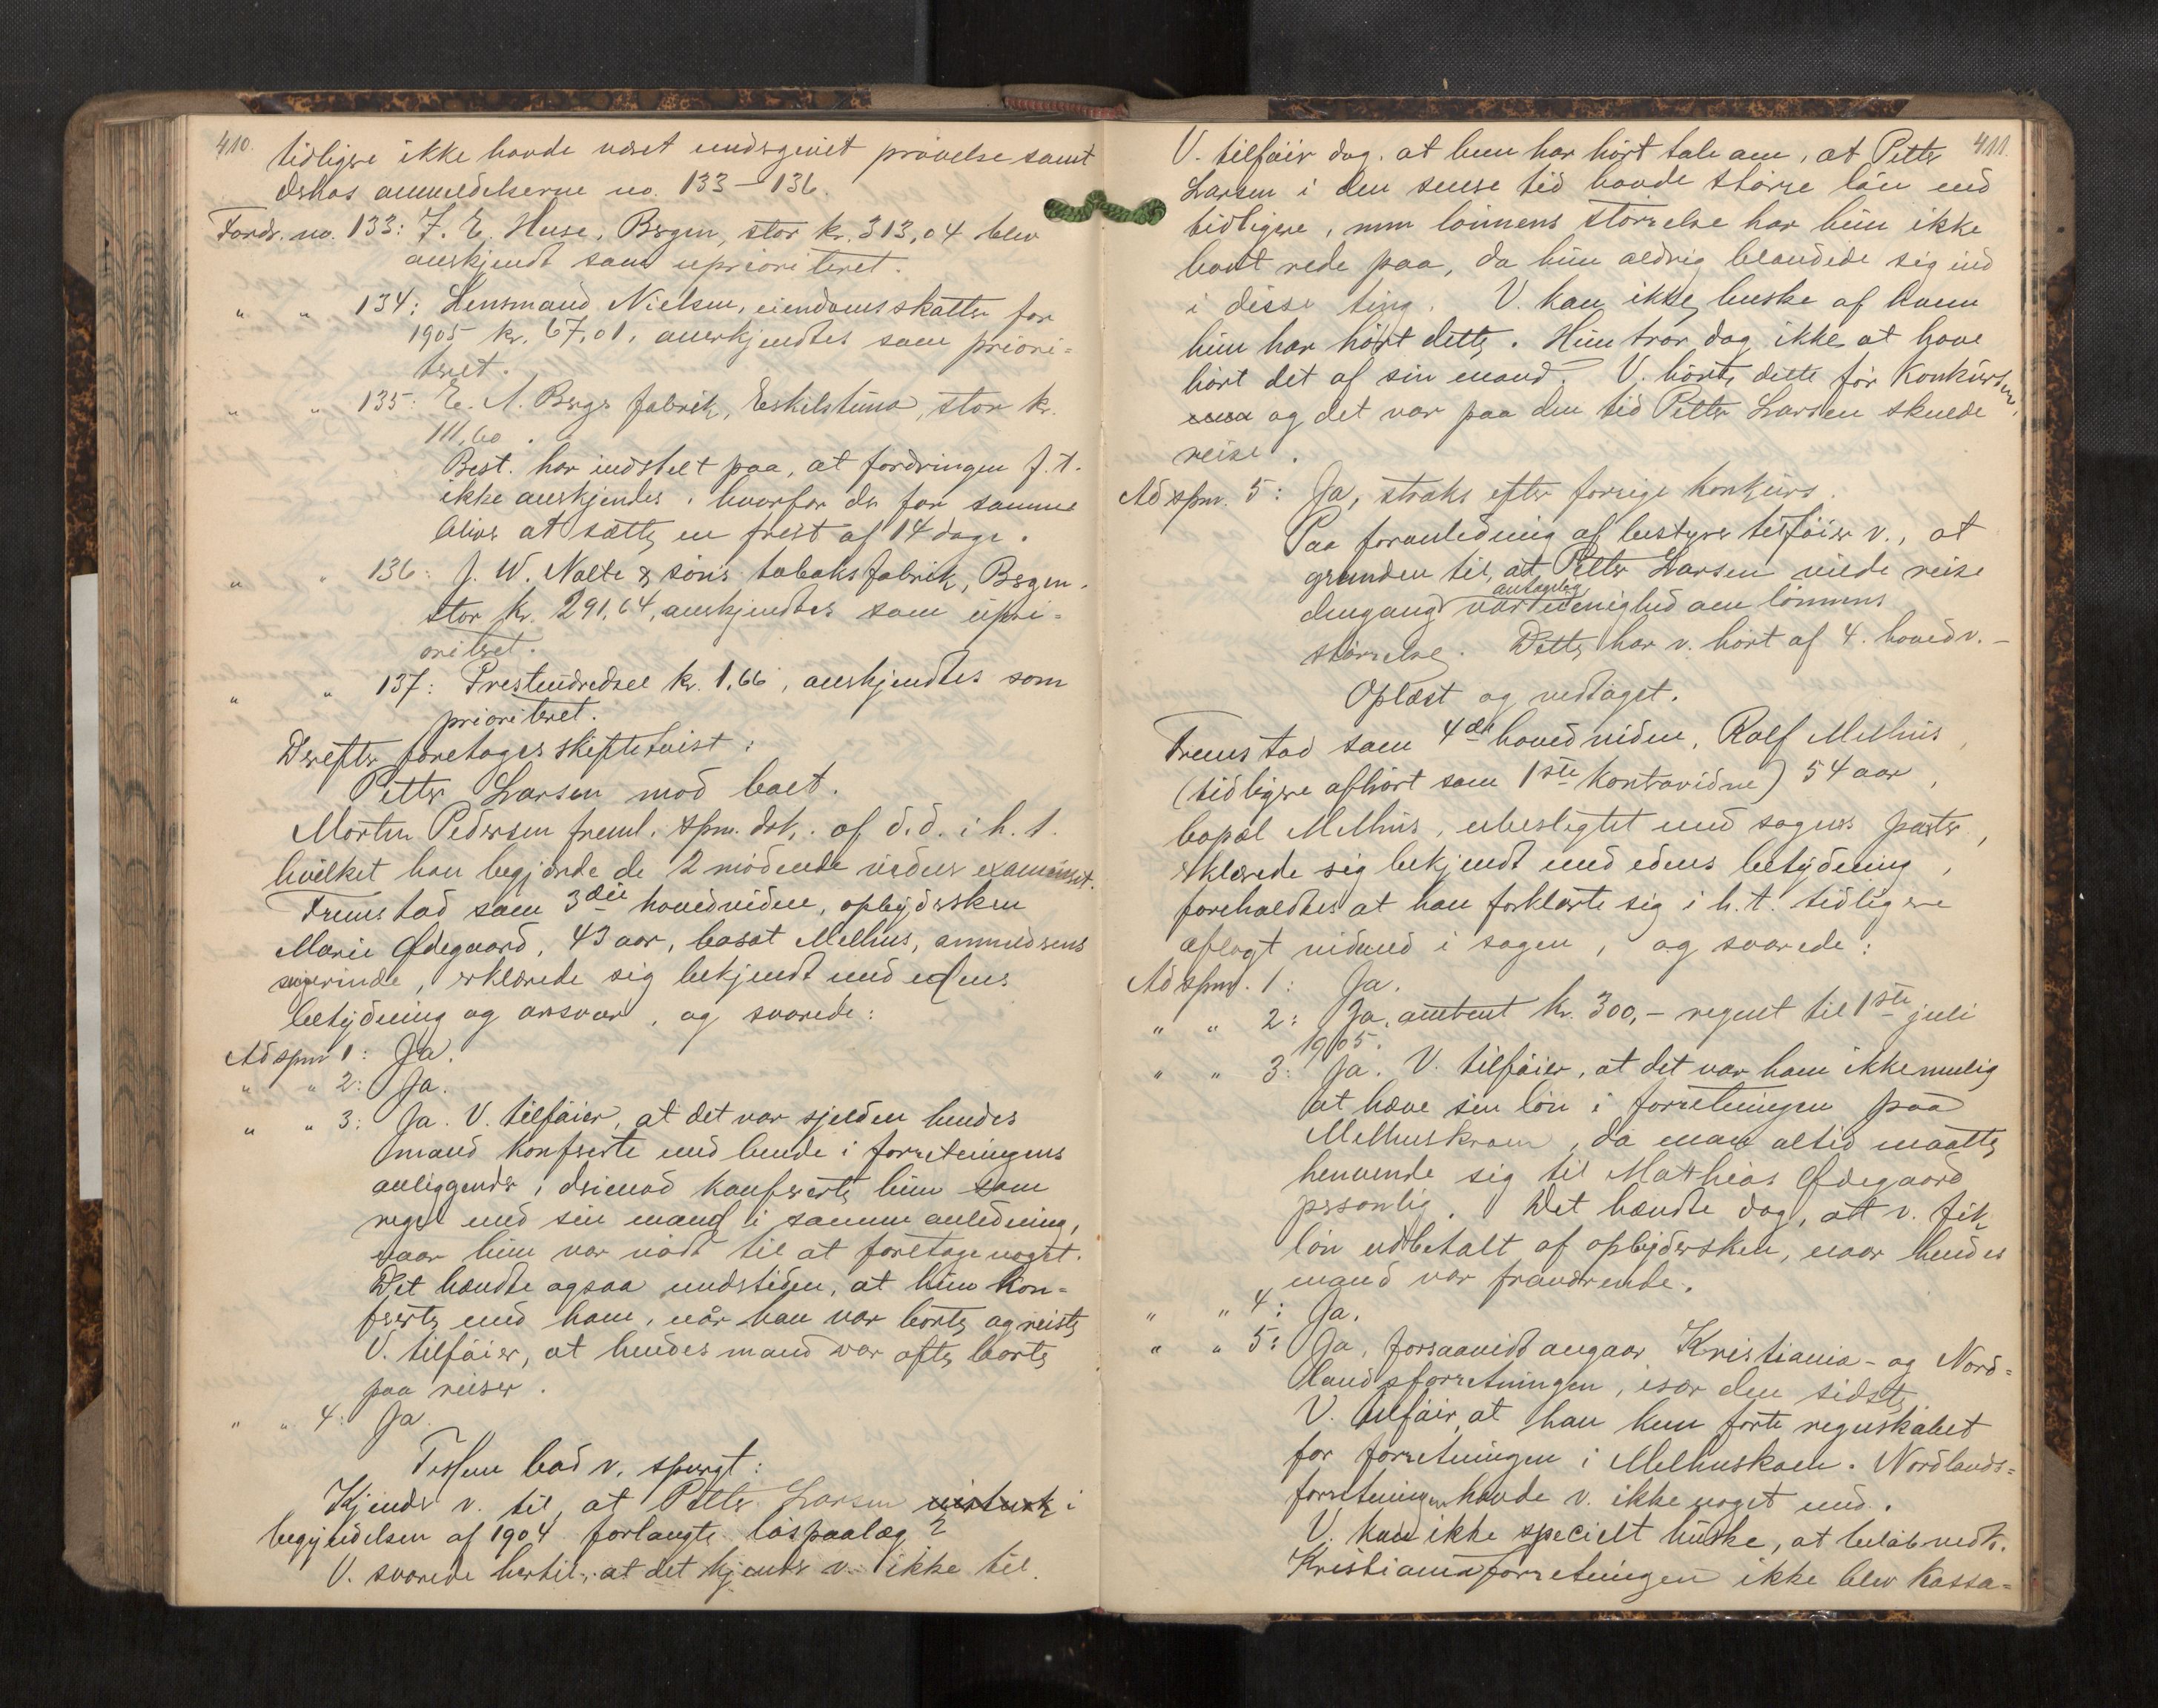 410.
tidligere ikke havde været undergivet prøvelse samt
derhos anmeldelserne no. 133–136.
Fordr. no. 133: J. E. Huse, Bergen, stor kr. 313,04 blev
anerkjendt som uprioriteret.
" " 134: Lensmand Nielsen, eiendomsskatter for
1905 kr. 67,01, anerkjendtes som priori=
teret.
" " 135: E. A. Bergs fabrik, Eskilstuna, stor kr.
111,60.
Best. har indstilt paa, at fordringen f. t.
ikke anerkjendes, hvorfor der for samme
blive at sætte en frist af 14 dage.
" " 136: J. W. Nolte & søns tobaksfabrik, Bergen,
stor kr. 291,64, anerkjendtes som upri=
oriteret.
" " 137: Prestindredsel kr. 1,66, anerkjendtes som
prioriteret.
Derefter foretages skiftetvist:
Petter Larsen mod boet.
Morten Pedersen freml. spm. dok. af d.d. i h. t.
hvilket han begjærde de 2 mødende vidner examineret.
Fremstod som 3die hovedvidne, opbydersken
Marie Ødegaard, 43 aar, bosat Melhus, anmelderens
svigerinde, erklærede sig bekjendt med edens
betydning og ansvar, og svarede:
Ad spm 1: Ja.
" " 2: Ja.
" " 3: Ja. V. tilføier, at det var sjelden hendes
mand konfererte med hende i forretningens
anliggender; derimod konfererte hun som
regel med sin mand i samme anledning,
naar hun var nødt til at foretage noget.
Det hændte ogsaa undertiden, at hun kon=
fererte med ham, når han var borte og reiste
V. tilføier, at hendes mand var ofte borte
paa reiser.
" " 4: Ja.
bad v. spurgt:
Kjender v. til, at Petter Larsen i
begyndelsen af 1904 forlangte løspaalæg?
V. svarede hertil, at det kjender v. ikke til.
411.
V. tilføier dog, at hun har hørt tale om, at Petter
Larsen i den senere tid havde større løn end
tidligere, men lønnens størrelse har hun ikke
havt rede paa, da hun aldrig blandede sig ind
i disse ting. V. kan ikke huske af hvem
hun har hørt dette. Hun tror dog ikke at have
hørt det af sin mand. V. hørte dette før konkursen,
og det var paa den tid Petter Larsen skulde
reise.
Ad spm. 5: Ja, straks efter forrige konkurs.
Paa foranledning af bestyrer tilføier v., at
grunden til, at Petter Larsen vilde reise
antagelig
dengang var uenighed om lønnens
størrelse. Dette har v. hørt af 4. hovedv. –
Oplæst og vedtaget.
Fremstod som 4de hovedvidne, Rolf Melhus,
(tidligere afhørt som 1ste kontravidne) 54 aar,
bopæl Melhus, ubeslegtet med sagens parter,
erklærede sig bekjendt med edens betydning,
foreholdtes at han forklarte sig i h. t. tidligere
aflagt vidneed i sagen, og svarede:
Ad spm. 1: Ja.
" " 2: Ja, omtrent kr. 300,– regnet til 1ste juli
1905.
" " 3: Ja. V. tilføier, at det var ham ikke mulig
at hæve sin løn i forretningen paa
Melhuskroen, da man altid maatte
henvende sig til Mathias Ødegaard
personlig. Det hændte dog, att v. fik
løn udbetalt af opbydersken, naar hendes
mand var fraværende.
" " 4: Ja.
" " 5: Ja, forsaavidt angaar Kristiania- og Nord=
landsforretningen, især den sidste
V. tilføier, at han kun førte regnskabet
for forretningen i Melhuskroen. Nordlands=
forretningen havde v. ikke noget med.
V. kan ikke specielt huske, at beløb vedk.
Kristianiaforretningen ikke blev kassa=